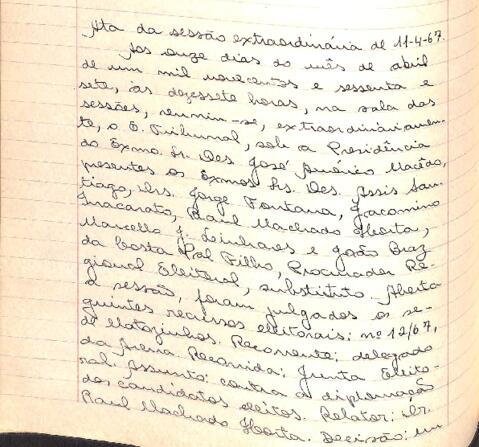 Ata da sessão extraordinária de 11-4-67.
Aos onze dias do mês de abril
de um mil novecentos e sessenta e
sete, às dezessete horas, na sala das
sessões, reuniu-se, extraordinariamen-
te, o E. Tribunal, sob a Presidência
do Exmo. Sr. Des. José Américo Macêdo,
presentes os Exmos. Srs. Des. Assis San-
tiago, Drs. Jorge Fontana, Jacomino
Inacarato, Raul Machado Horta,
Marcello J. Linhares e João Braz
da Costa Val Filho, Procurador Re-
gional Eleitoral, substituto. Aberta
a sessão, foram julgados os se-
guintes recursos eleitorais: nº 12/67,
de Matozinhos. Recorrente: delegado
da Arena. Recorrida: Junta Eleito-
ral. Assunto: contra a diplomação
dos candidatos eleitos. Relator: Dr.
Raul Machado Horta. Decisão: un